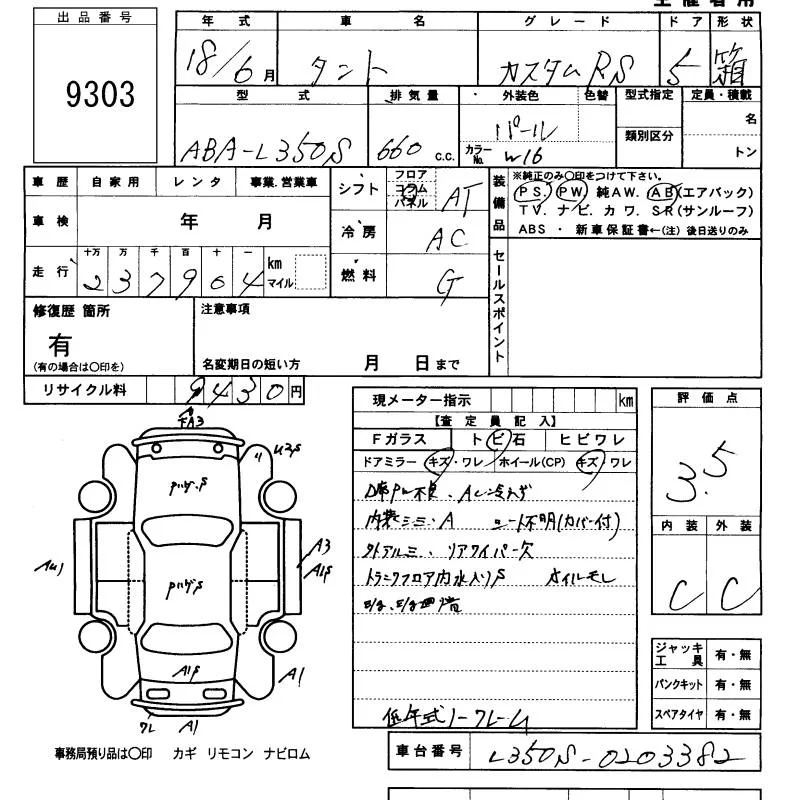 出品番号
9303
年式 車名 グレード ドア 形状
18/6月 タント カスタムRS 5 箱
型式 排気量 外装色 色替 型式指定 定員・積載
類別区分 名
トン
ABA-L350S 660 c.c. パール
カラーNo. W16
車歴 自家用 レンタ 事業.営業車
車検 年 月
走行 十万 万 千 百 十 一 km マイル
237904
シフト フロア コラム パネル AT
冷房 AC
燃料 G
装備品
※純正のみ○印をつけて下さい。
PS. PW 純AW. AB(エアバック)
TV. ナビ. カワ. SR(サンルーフ)
ABS ・ 新車保証書←(注) 後日送りのみ
セールスポイント
修復歴 箇所
有
(有の場合は○印を)
注意事項
名変期日の短い方 月 日まで
リサイクル料 9430円
現メーター指示 km
【査定員記入】
Fガラス トビ石 ヒビワレ
ドアミラー キズ・ワレ ホイール(CP) キズ ワレ
内装ミミ・A シート不明(カバー付)
外アルミ、リアワイパー欠
トランクフロア内水入りS オイルモレ
低年式ノークレーム
評価点
3.5
内装 外装
C C
ジャッキ工具 有・無
パンクキット 有・無
スペアタイヤ 有・無
A3
A1S
A1S
A1
ワレ A1
事務局預り品は○印 カギ リモコン ナビロム
車台番号 L350S-0203382